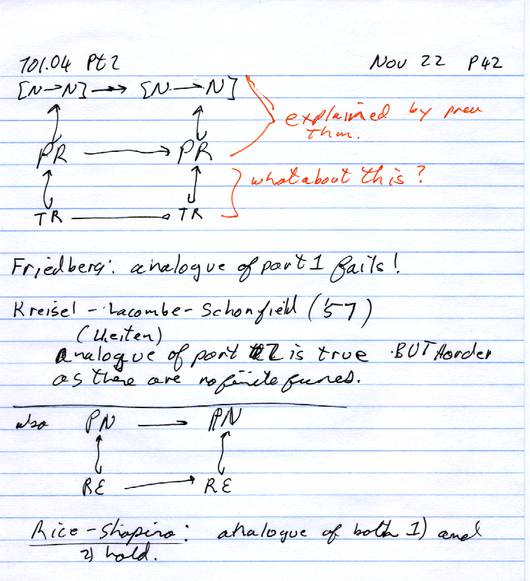 701.04 Pt2 Nov 22 P42
[N→N] →→ [N→N]
explained by prev
thm.
PR → PR
what about this?
TR → TR
Friedberg: analogue of part 1 fails!
Kreisel - Lacombe - Schonfield ('57)
analogue of part 2 is true BUT Harder
as there are no finite funcs.
also PN → PN
RE → RE
Rice-Shapiro: analogue of both 1) and
2) hold.